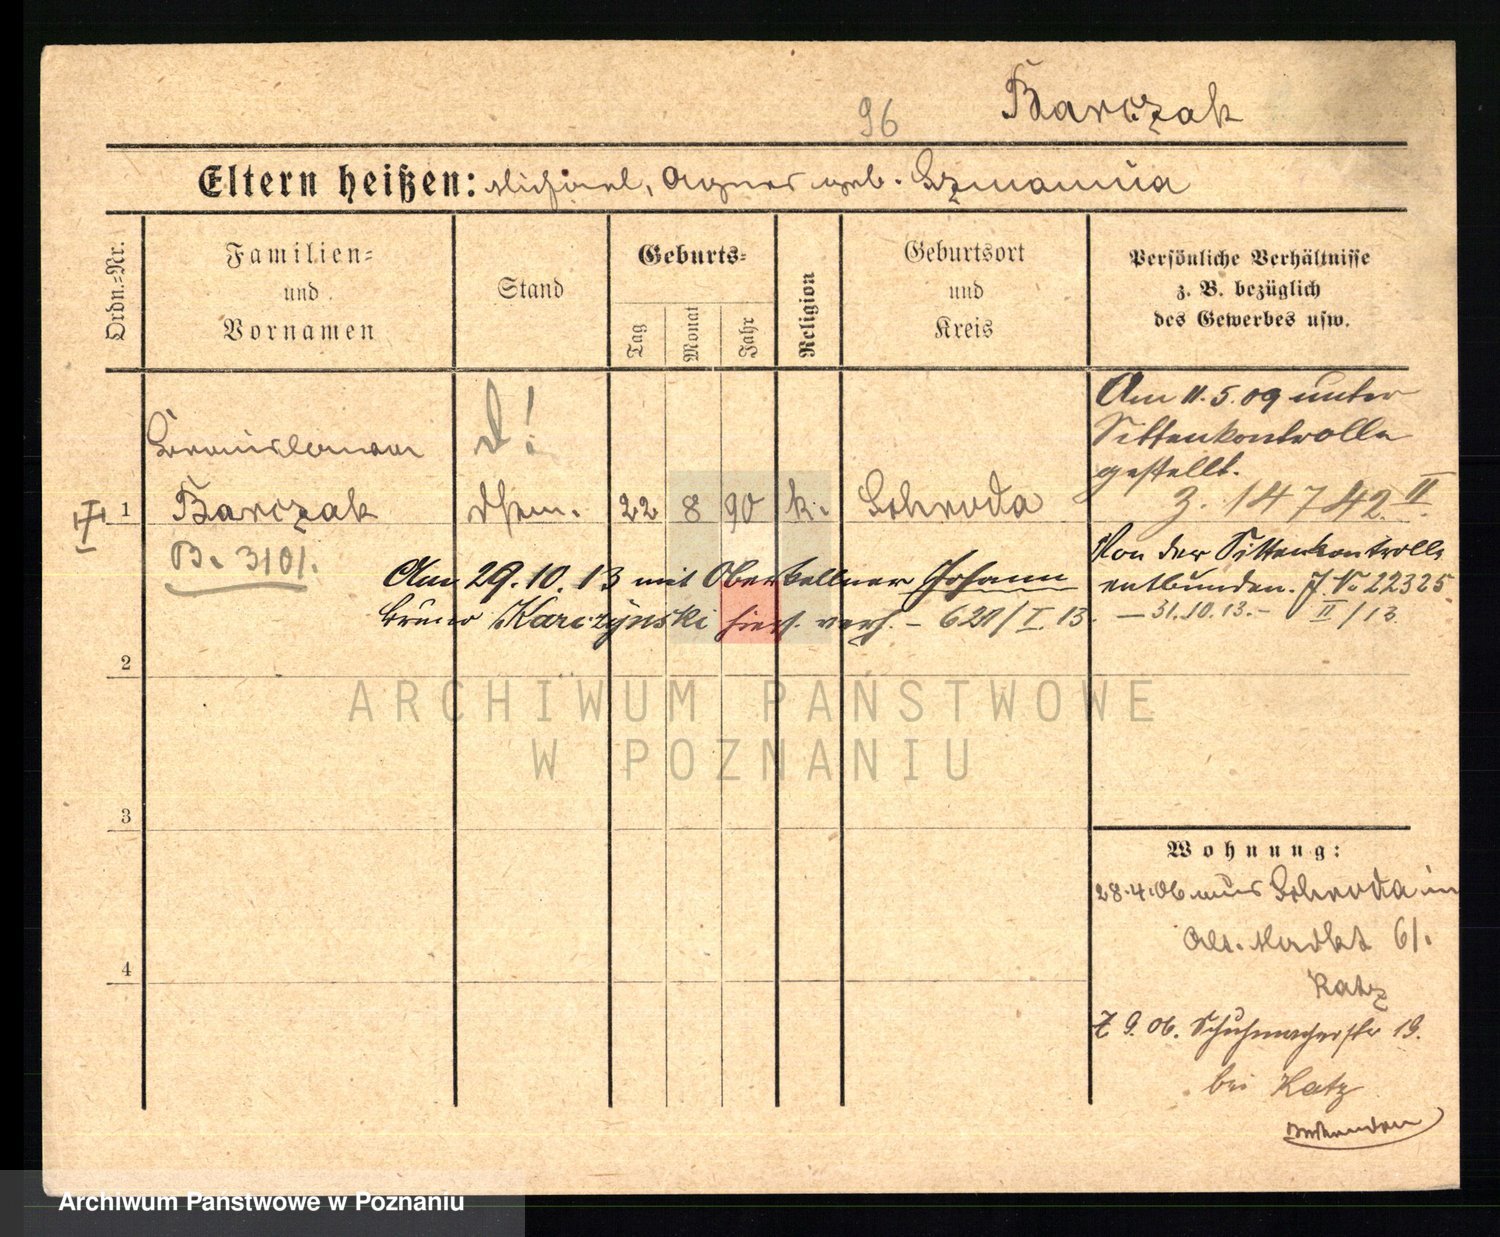 96 Barczak
Eltern heißen: Michael, Agnes geb. Szmania
Ordn.=Nr.
Familien=
und
Vornamen
Stand
Geburts=
Tag
Monat
Jahr
Religion
Geburtsort
und
Kreis
Persönliche Verhältnisse
z. B. bezüglich
des Gewerbes usw.
1
Barczak
22 8 90 k. Schroda
B. 3101.
Am 29.10.13 mit Oberkellner Johann
Bruno Karczynski hiers. verh. – 621/I.13.
Am 11.5.09 unter
Sittenkontrolle
gestellt.
J. 14742.II.
Von der Sittenkontrolle
entbunden. J. No 22325
– 31.10.13. – II/13
2
3
4
Wohnung:
28.4.06 aus Schroda in
Alt. Markt 61.
Katz
7 9. 06. Schuhmacherstr 19.
bei Katz
ARCHIWUM PAŃSTWOWE
W POZNANIU
Archiwum Państwowe w Poznaniu